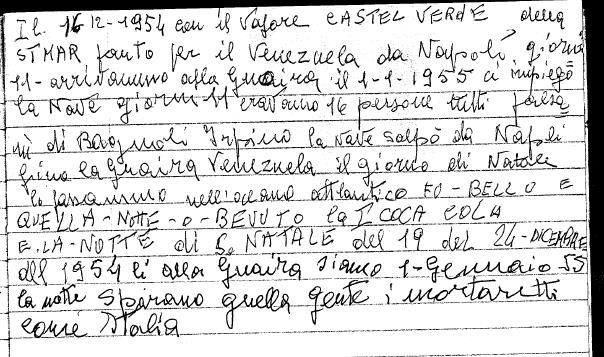 Il 16 12-1954 con il Vapore CASTEL VERDE della
SITMAR parto per il Venezuela da Napoli, giorni
11-arrivammo alla Guaira il 1-1-1955 ci impiegò
la Nave giorni 11 eravamo 16 persone tutti paesa=
ni di Bagnoli Irpino la nave salpò da Napoli
fino la Guaira Venezuela il giorno di Natale
lo passammo nell'oceano attlantico FU-BELLO E
QUELLA-NOTTE-O-BEVUTO la I COCA COLA
E.LA-NOTTE di S. NATALE del 19 del 24-DICEMBRE
del 1954 li alla Guaira siamo 1-Gennaio 55
la notte sparano quella gente i mortaretti
come Italia